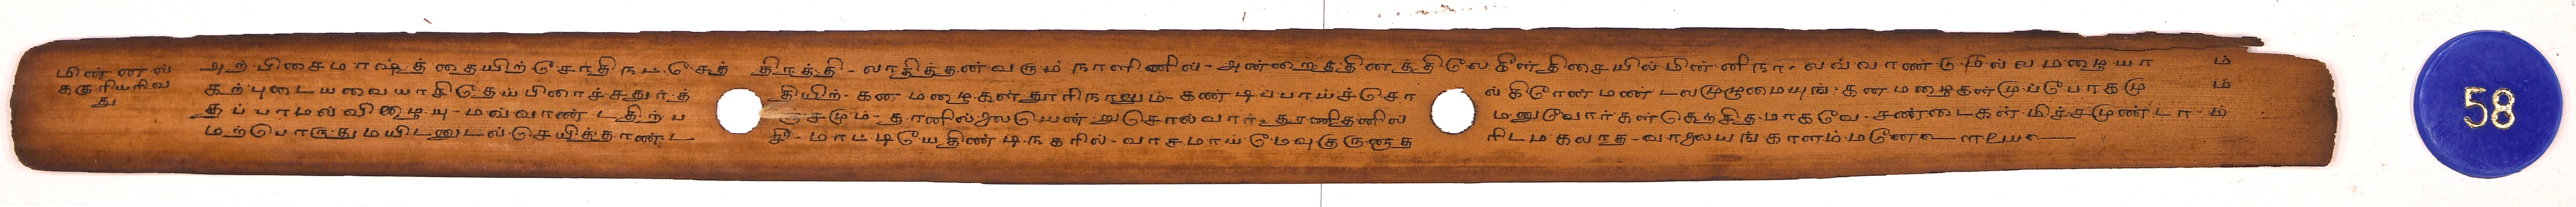 மின்னல்
குறியறிவ
து
அற்பிசைமாஷத்தையிற்சேர்திநட்சேத் திரத்தி-லாதித்தன்வரும்நாளினில்-அண்றைத்தினத்திலே கீள்திசையில்மின்னிநா-லவ்வாண்டுமில்லமழையா ம்
தற்புடையவையாகிதெய்பிறைச்சதுர்த் தியிற்-கனமழைகள்தூரிநாலும்-கண்டிப்பாய்ச்சொ ல்கிறேன்மண்டலமுழுமையுங்-கனமழைகள்முப்போகமு ம்
தப்பாமல்விழையு-மவ்வாண்டதிற்ப ஞ்சமும்-தானில்லையென்றுசொல்வார்-தரணிதனில் மனுவோர்கள்கெற்சிதமாகவே-சண்டைகள்மிச்சமுண்டா-ம்
மற்பொருதுமயிடனுடல்செயித்தாண்ட கி-மாட்டியேதிண்டிநகரில்-வாசமாய்மேவுகுருஞத ரிடமகலாத-வாலையங்காளம்மணே
58